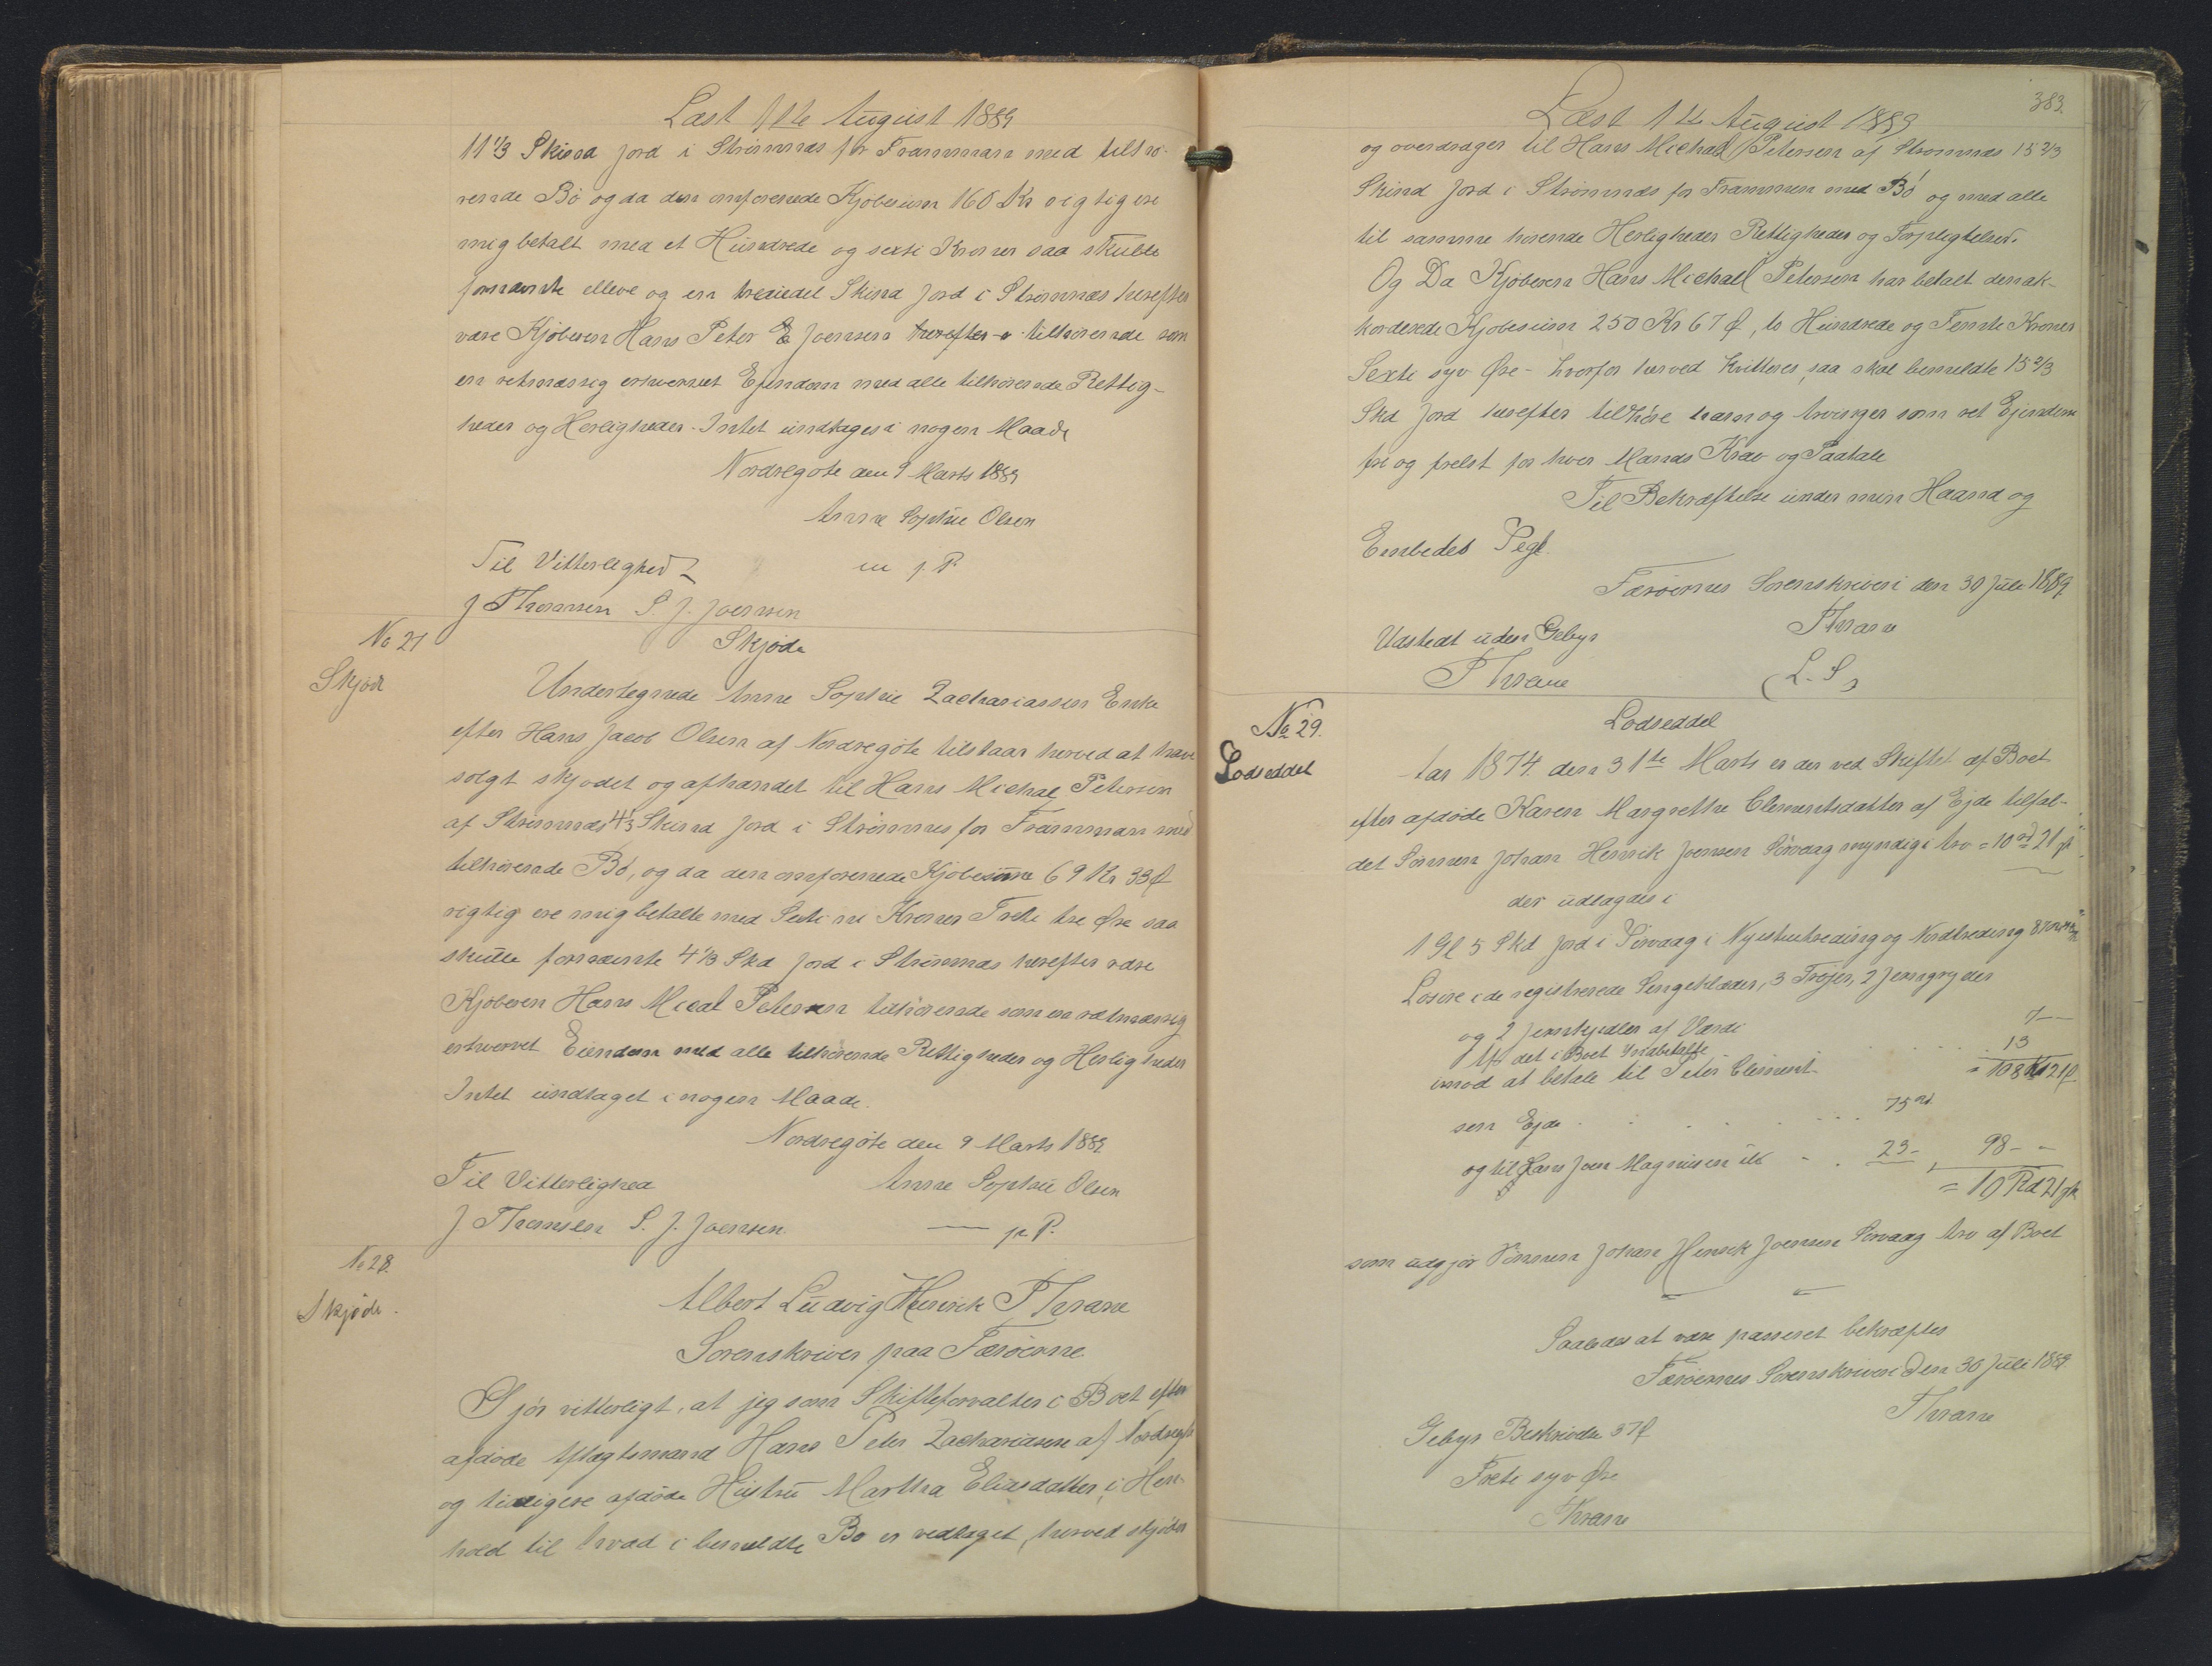 Læst 1ste August 1889
11 1/3 Skind Jord i Strömnæs for Frammann med tilhö-
rende Bö og da den omforenede Kjöbesum 160 Kr rigtig ere
mig betalt med et Hundrede og sexti Kroner saa skulle
fornævnte elleve og en trediedel Skind Jord i Strömnæs herefter
være Kjöberen Hans Peter E Joensen herefter tilhörende som
en retmæssig erhvervet Ejendom med alle tilhörende Rettig-
heder og Herligheder. Intet undtages i nogen Maade
Nordregöte den 9 Marts 1889
Anne Sophie Olsen
Til Vitterlighed m p. P.
J Thomsen S. J. Joensen
No 27
Skjöde
Skjöde
Undertegnede Anne Sophie Zachariassen Enke
efter Hans Jacob Olsen af Nordregöte tilstaar herved at have
solgt skjödet og afhændet til Hans Michal Petersen
af Strömnæs 4 1/3 Skind Jord i Strömnes for Frammann med
tilhörende Bö, og da den omforenede Kjöbesum 69 Kr 33 Ø
rigtig ere mig betalte med Sexti ni Kroner Treti tre Øre saa
skulle fornævnte 4 1/3 Skd Jord i Strömnæs herefter være
Kjöberen Hans Mical Petersen tilhörende som en retmæssig
erhvervet Eiendom med alle tilhörende Rettigheder og Herligheder
Intet undtaget i nogen Maade.
Nordregöte den 9 Marts 1889
Til Vitterlighed Anne Sophie Olsen
J Thomsen S. J. Joensen. — p. P.
No 28.
Skjöde.
Albert Ludvig Henrik Thrane
Sorenskriver paa Færöerne
Gjör vitterligt, at jeg som Skifteforvalter i Boet efter
afdöde Aftægtsmand Hans Peter Zachariasen af Nordregöte
og tidligere afdöde Hustru Martha Eliasdatter, i Hen-
hold til hvad i bemeldte Bo er vedtaget, herved skjöder
383.
Læst 1ste August 1889
og overdrager til Hans Michael Petersen af Strømnæs 15 2/3
Skind Jord i Strømnæs for Frammen med Bö og med alle
til samme hörende Herligheder Rettigheder og Forpligtelser.
Og Da Kjöberen Hans Michael Petersen har betalt den ak-
korderede Kjöbesum 250 Kr 67 Ø, to Hundrede og Femti Kroner
Sexti syv Øre - hvorfor herved kvitteres, saa skal bemeldte 15 2/3
Skd Jord herefter tilhöre ham og Arvinger som ret Ejendom
fri og frelst for hver Mands Krav og Paatale
Til Bekræftelse under min Haand og
Embedes Segl.
Færöernes Sorenskriveri den 30 Juli 1889
Udstedt uden Gebyr Thrane
Thrane (L. S.)
No 29.
Lodseddel
Lodseddel
Aar 1874 den 31te Marts er der ved Skiftet af Boet
efter afdöde Karen Margrethe Clementsdatter af Ejde tilfal-
det Sönnen Johan Henrik Joensen Sörvaag myndig i Arv = 10 rd 21 sk
der udlagdes i
1 Gl 5 Skd Jord i Sörvaag i Nyestuetreding og Nordtreding
Lösöre i de registrerede Sengeklæder, 3 Trøjer, 2 Jerngryder
og 2 Jernkjedler af Værdi 7 - -
Af det i Boet Indbetalte 13
imod at betale til Peter Clement- = 108
sen Ejde 75 rd
og til Hans Joen Magnusen ib 23 - 98 - -
= 10 Rd 21 sk
som udgjör Sönnen Johan Henrik Joensen Sörvaag Arv af Boet
Saaledes at være passeret bekræftes
Færöernes Sorenskriveri Den 30 Juli 1889
Thrane
Gebyr Beskrivelse 37 Ø
Treti syv Øre
Thrane